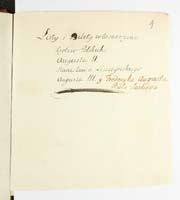 4
Listy i Bilety własnoręczne
Królów Polskich
Augusta II
Stanisława Leszczyńskiego
Augusta III y Fryderyka Augusta